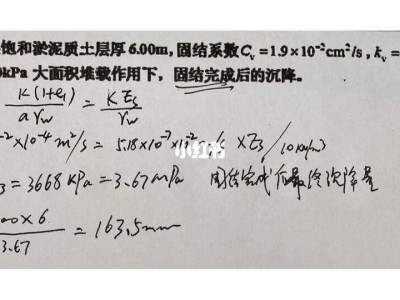 饱和淤泥质土层厚6.00m,固结系数Cᵥ=1.9×10⁻²cm²/s,kᵥ=
0kPa 大面积堆载作用下,固结完成后的沉降。
k(1+e₁)/aγw = kEs/γw
⁻²×10⁻⁴m²/s = 5.18×10⁻⁷×10⁻² ×Es/10kN/m³
小红书
s=3668kPa=3.67mPa 固结完成后最终沉降量
00×6/3.67 = 163.5mm